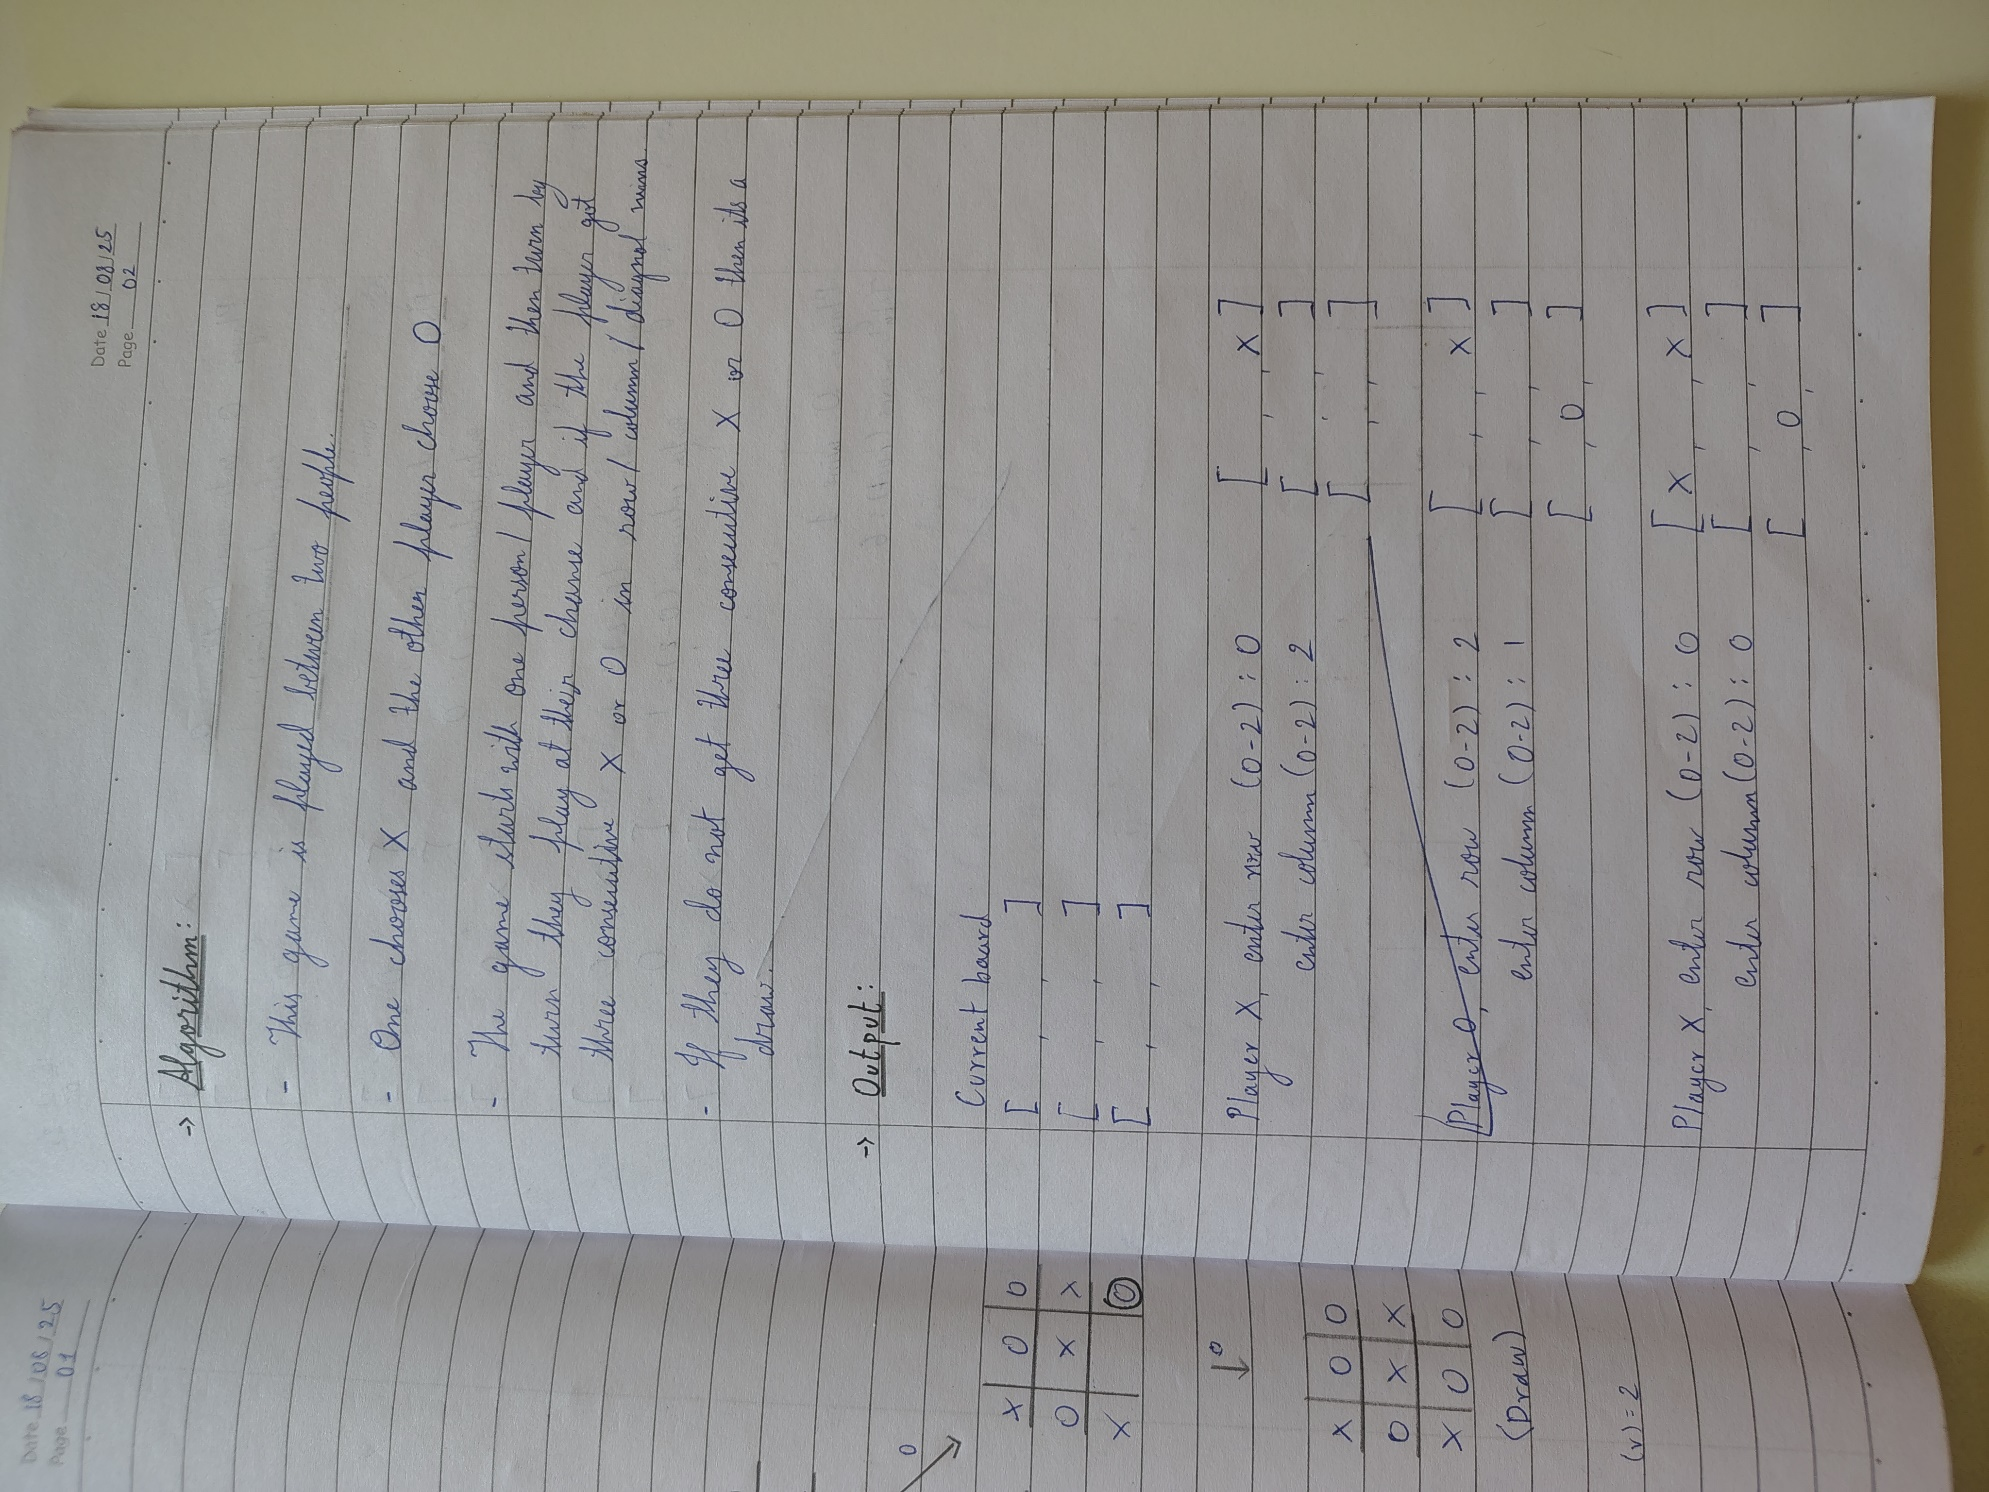 Date 18/08/25
Page 01
0
X 0 0
0 X X
X 0
↓ 0
X 0 0
0 X X
X 0 0
(Draw)
(v) = 2
Date 18/08/25
Page 02
→ Algorithm:
- This game is played between two people.
- One chooses X and the other player choose O
- The game starts with one person/player and then turn by
turn they play at their chanse and if the player got
three consecutive X or O in row/column/diagnol wins.
- If they do not get three consecutive X or O then its a
draw.
→ Output:
Current board
[ , , ]
[ , , ]
[ , , ]
Player X, enter row (0-2) : 0 [ , , X ]
enter column (0-2) : 2 [ , , ]
[ , , ]
Player O, enter row (0-2) : 2 [ , , X ]
enter column (0-2) : 1 [ , , ]
[ , O, ]
Player X, enter row (0-2) : 0 [ X , , X ]
enter column (0-2) : 0 [ , , ]
[ , O, ]